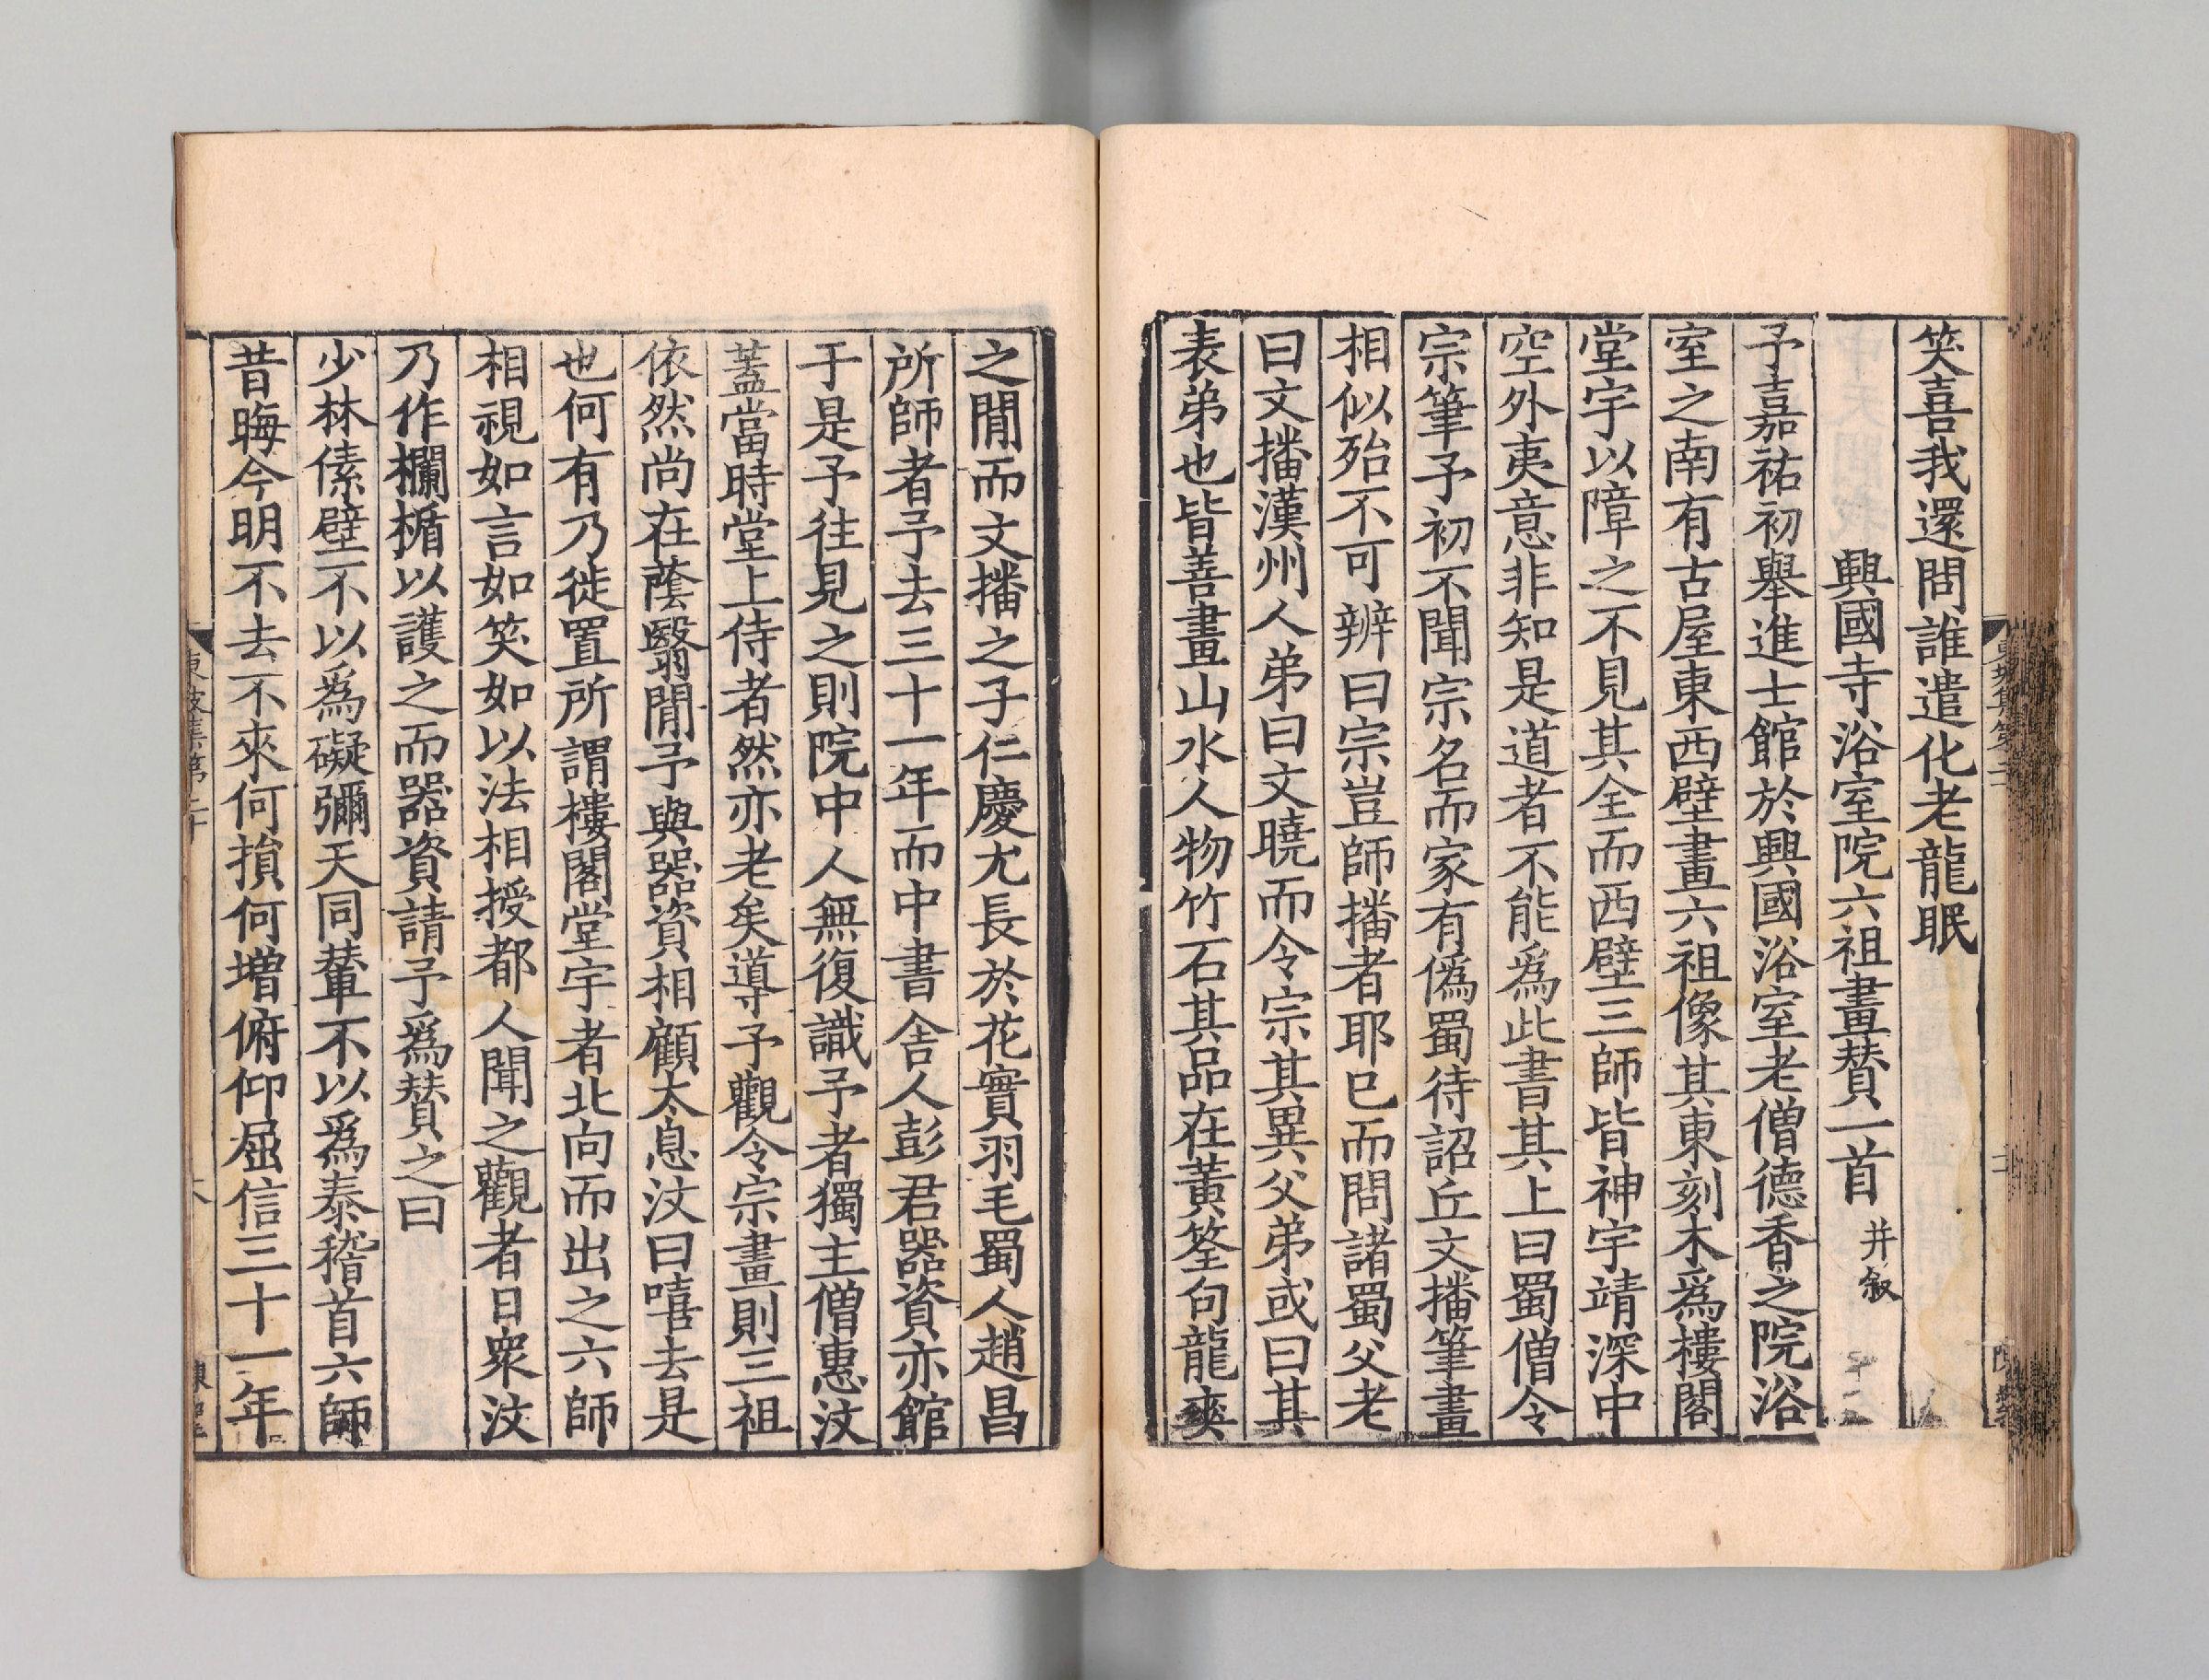 笑喜我還問誰遣化老龍眠
興國寺浴室院六祖畫賛一首 并叙
予嘉祐初舉進士館於興國浴室老僧德香之院浴
室之南有古屋東西壁畫六祖像其東刻木爲樓閣
堂宇以障之不見其全而西壁三師皆神宇靖深中
空外夷意非知是道者不能爲此書其上曰蜀僧令
宗筆予初不聞宗名而家有僞蜀待詔丘文播筆畫
相似殆不可辨曰宗豈師播者耶已而問諸蜀父老
曰文播漢州人弟曰文曉而令宗其異父弟或曰其
表弟也皆善畫山水人物竹石其品在黃筌句龍爽
之閒而文播之子仁慶尤長於花實羽毛蜀人趙昌
所師者予去三十一年而中書舍人彭君器資亦館
于是予往見之則院中人無復識予者獨主僧惠汶
蓋當時堂上侍者然亦老矣導予觀令宗畫則三祖
依然尚在蔭翳閒予與器資相顧太息汶曰嘻去是
也何有乃徙置所謂樓閣堂宇者北向而出之六師
相視如言如笑如以法相授都人聞之觀者日衆汶
乃作欄楯以護之而器資請予爲賛之曰
少林傃壁不以爲礙彌天同輦不以爲泰稽首六師
昔晦今明不去不來何損何增俯仰屈信三十一年
東坡集第二十